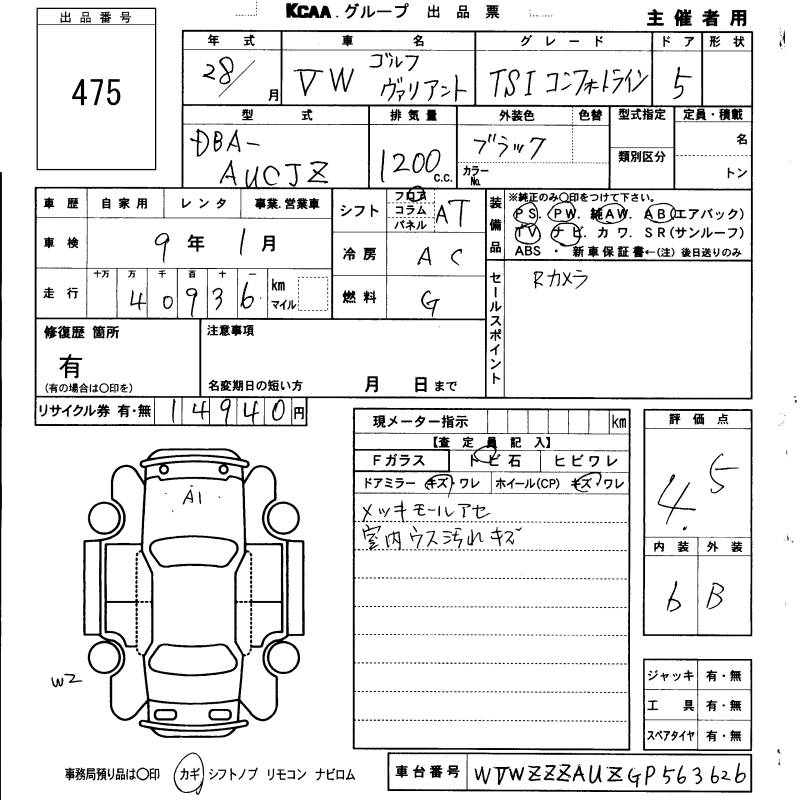 KCAA グループ 出品票
主催者用
出品番号
475
年式 車名 グレード ドア 形状
28/ 月 VW ゴルフ ヴァリアント TSI コンフォートライン 5
型式 排気量 外装色 色替 型式指定 定員・積載
DBA-AUCJZ 1200 c.c. ブラック カラーNo. 類別区分 名 トン
車歴 自家用 レンタ 事業.営業車
車検 9年 1月
走行 十万 万 千 百 十 一 km マイル
40936
シフト フロア コラム パネル AT
冷房 AC
燃料 G
装備品 ※純正のみ〇印をつけて下さい。
PS. PW. 純AW. AB(エアバック)
TV ナビ. カワ. SR(サンルーフ)
ABS ・ 新車保証書←(注) 後日送りのみ
セールスポイント
Rカメラ
修復歴 箇所
有
(有の場合は〇印を)
注意事項
名変期日の短い方 月 日まで
リサイクル券 有・無 14940円
現メーター指示 km
【査定員記入】
Fガラス トビ石 ヒビワレ
ドアミラー キズ ワレ ホイール(CP) キズ ワレ
メッキモールアセ
室内ウス汚れキズ
評価点
4.5
内装 外装
6 B
A1
W2
ジャッキ 有・無
工具 有・無
スペアタイヤ 有・無
事務局預り品は〇印 カギ シフトノブ リモコン ナビロム
車台番号 WVWZZZAUZGP563626